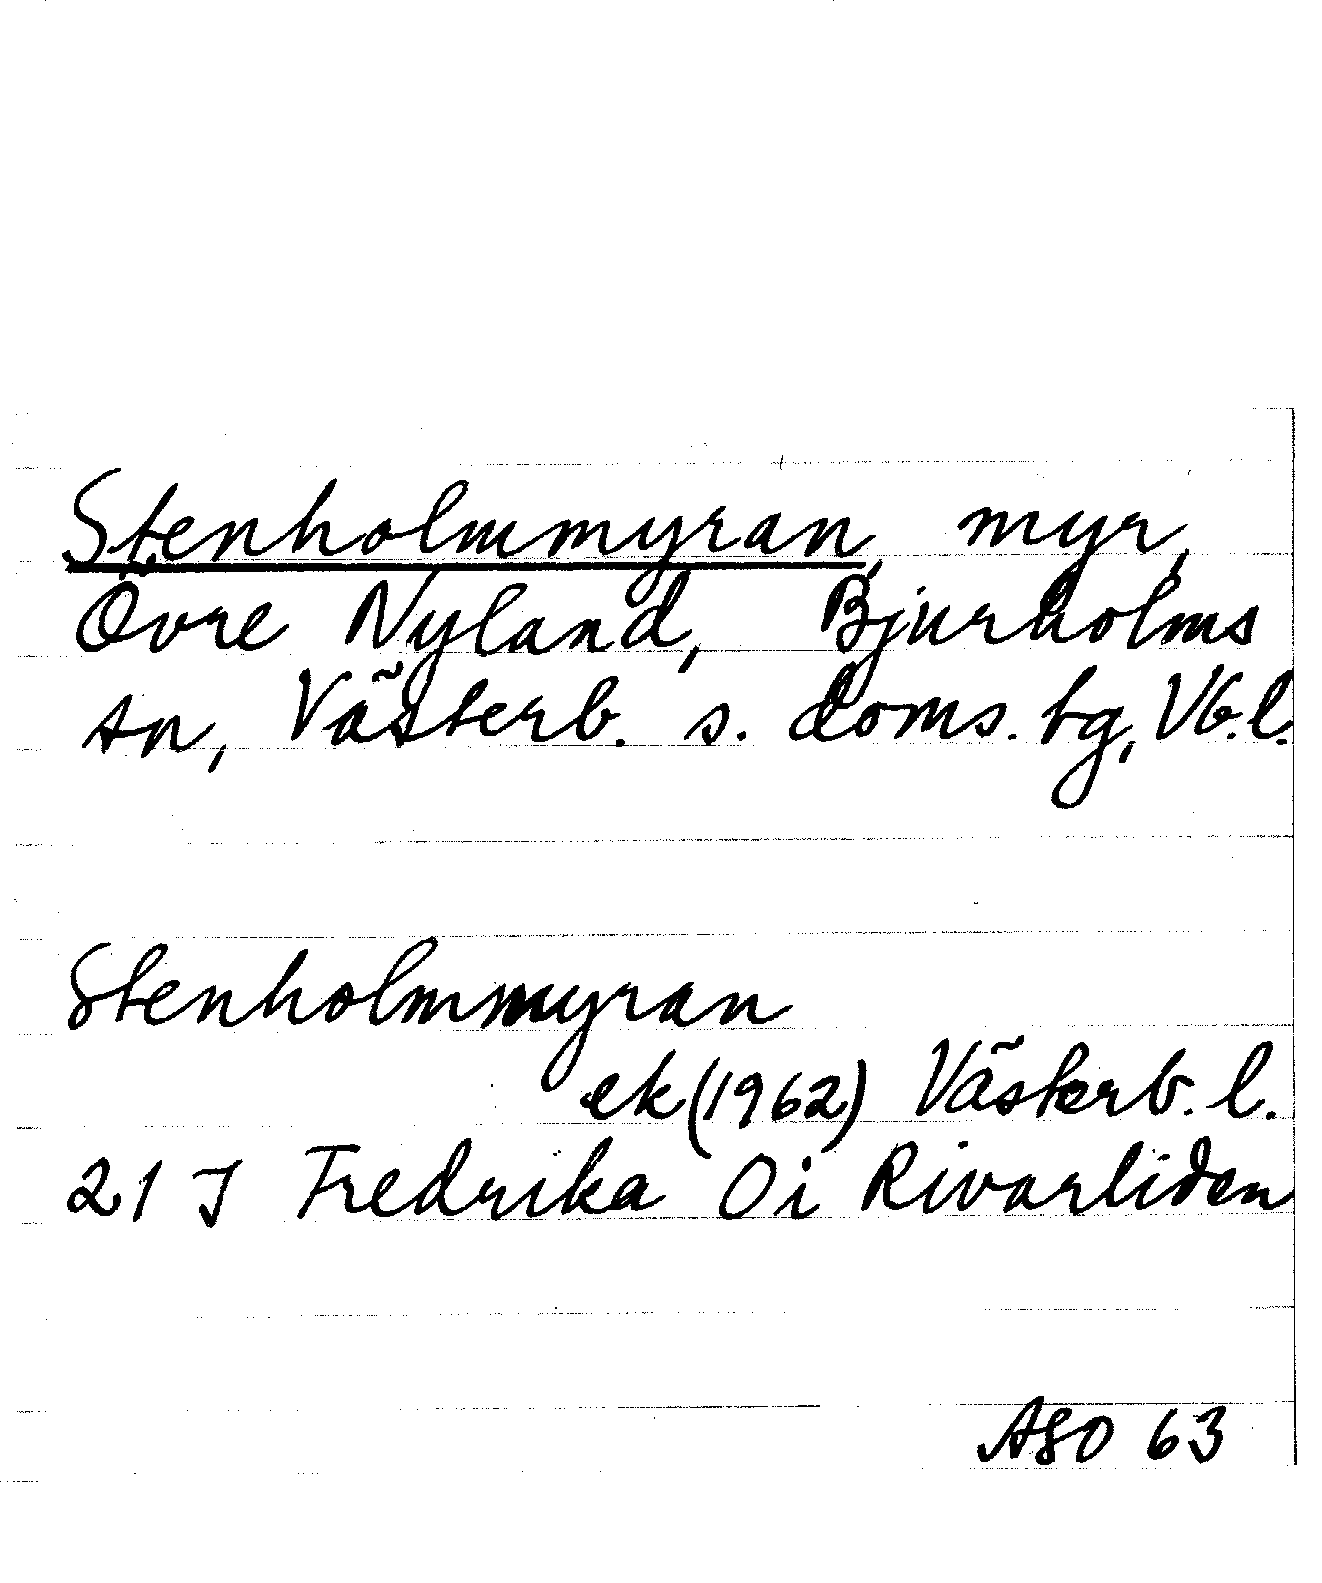 Stenholmmyran, myr,
Övre Nyland, Bjurholms
sn, Västerb. s. doms. tg, Vb.l.
Stenholmmyran
ek (1962) Västerb. l.
21 J Fredrika Oi Rivarliden
ASO 63